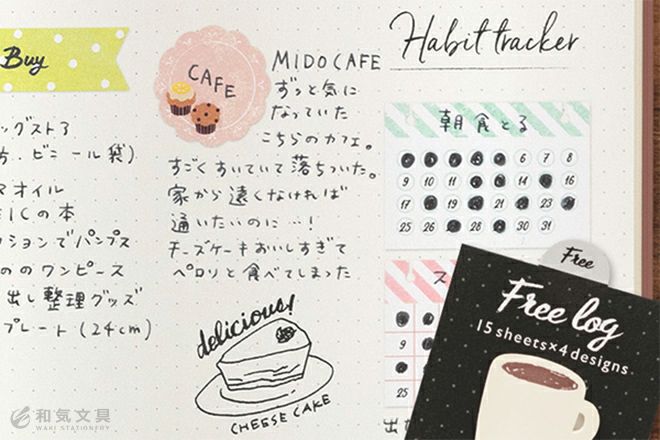 Buy
ッグストア
ビニール袋)
マオイル
の本
ションでパンプス
ののワンピース
出し整理グッズ
プレート(24cm)
CAFE
MIDO CAFE
ずっと気に
なっていた
こちらのカフェ。
すごくすいていて落ちついた。
家から遠くなければ
通いたいのに…!
チーズケーキおいしすぎて
ペロリと食べてしまった
delicious!
CHEESE CAKE
Habit tracker
朝食とる
6 7 8
9 10 11 12 13 14 16
17 19 22
25 26 28 30 31
ス
9
25
Free
Free log
15 sheets×4 designs
和気文具
WAKI STATIONERY